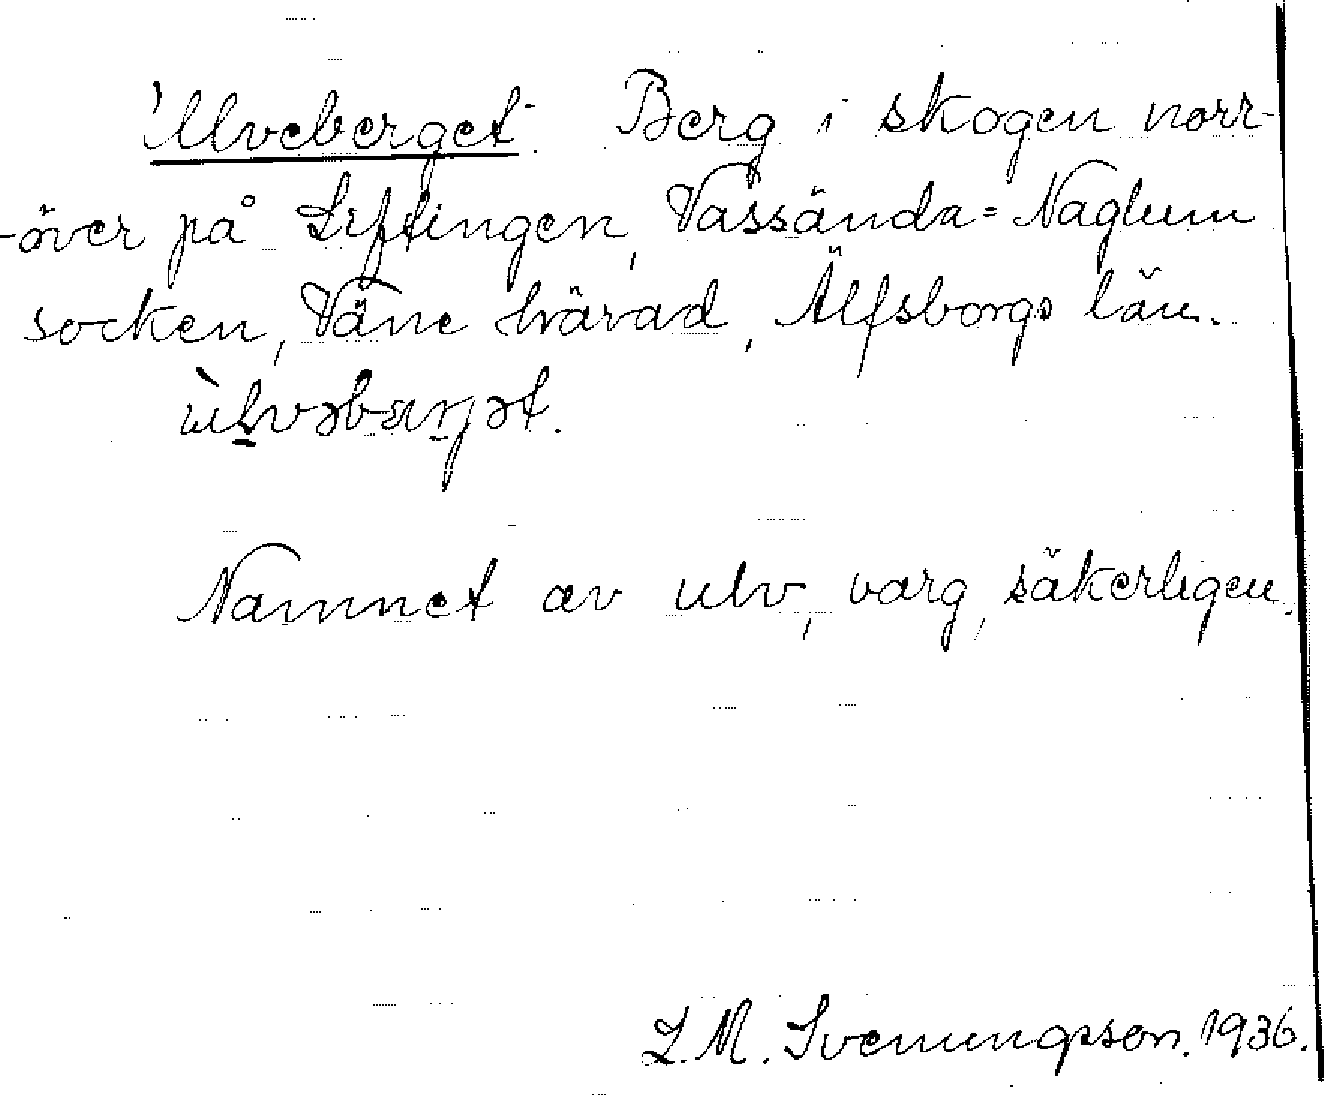 Ulveberget. Berg i skogen norr-
över på Lyftingen, Vassända=Naglum
socken, Väne härad, Älfsborgs län.
ùl̠vəbærjət.
Namnet av ulv, varg, säkerligen.
L. M. Svenungsson. 1936.